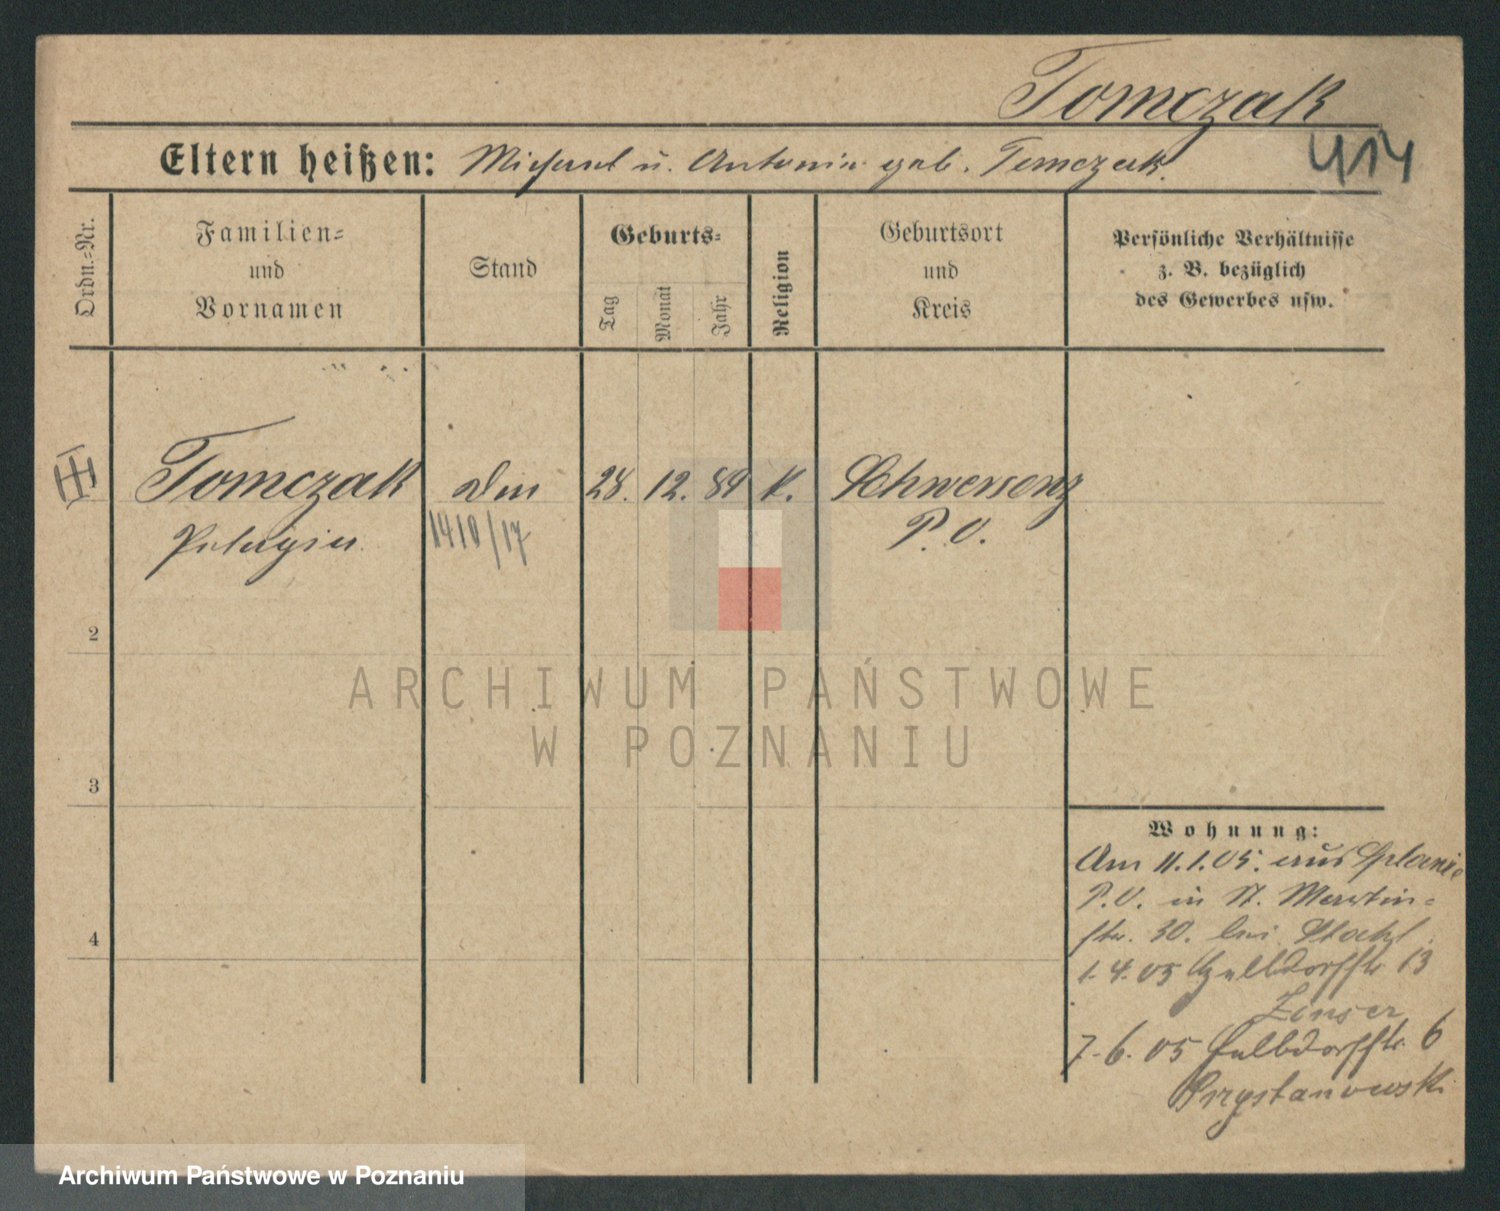 Tomczak
414
Eltern heißen: Michael u. Antonia geb. Tomczak.
Ordn.-Nr.
Familien- und Vornamen
Stand
Geburts-
Tag
Monat
Jahr
Religion
Geburtsort und Kreis
Persönliche Verhältnisse
z. B. bezüglich
des Gewerbes usw.
Tomczak 28. 12. 89 K. Schwersenz
Pelagia P. O.
1410/17
2
3
4
Wohnung:
Am 11.1.05. aus
P.O. in St. Martin-
str. 30. bei
1.4.05 13
7.6.05 6
ARCHIWUM PAŃSTWOWE
W POZNANIU
Archiwum Państwowe w Poznaniu